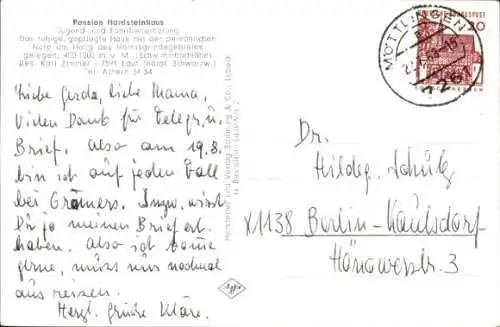 Pension Hardsteinhaus
Jugend- und Familienerholung
Das ruhige, gepflegte Haus mit der persönlichen
Note am Hang des Hornisgrindegebietes
gelegen, 400-1000 m ü. M. (Schwimmbadnähe)
Bes. Karl Zimmer - 7591 Lauf (nördl. Schwarzw.)
Tel. Achern 64 34
Liebe Gerda, liebe Mama,
Vielen Dank für Telegr. u.
Brief. Also am 19.8.
bin ich auf jeden Fall
bei Grämers. Inzw. wirst
Du ja meinen Brief erh.
haben. Also ich komme
gerne, muss nur nochmal
ausreisen.
Herzl. Grüße Kläre.
Hersteller und Verlag Schöning & Co., Lübeck
DEUTSCHE BUNDESPOST
20
MÖTTLINGEN
Dr.
Hildeg. Schulz
X1138 Berlin-Kaulsdorf
Hönowerstr. 3